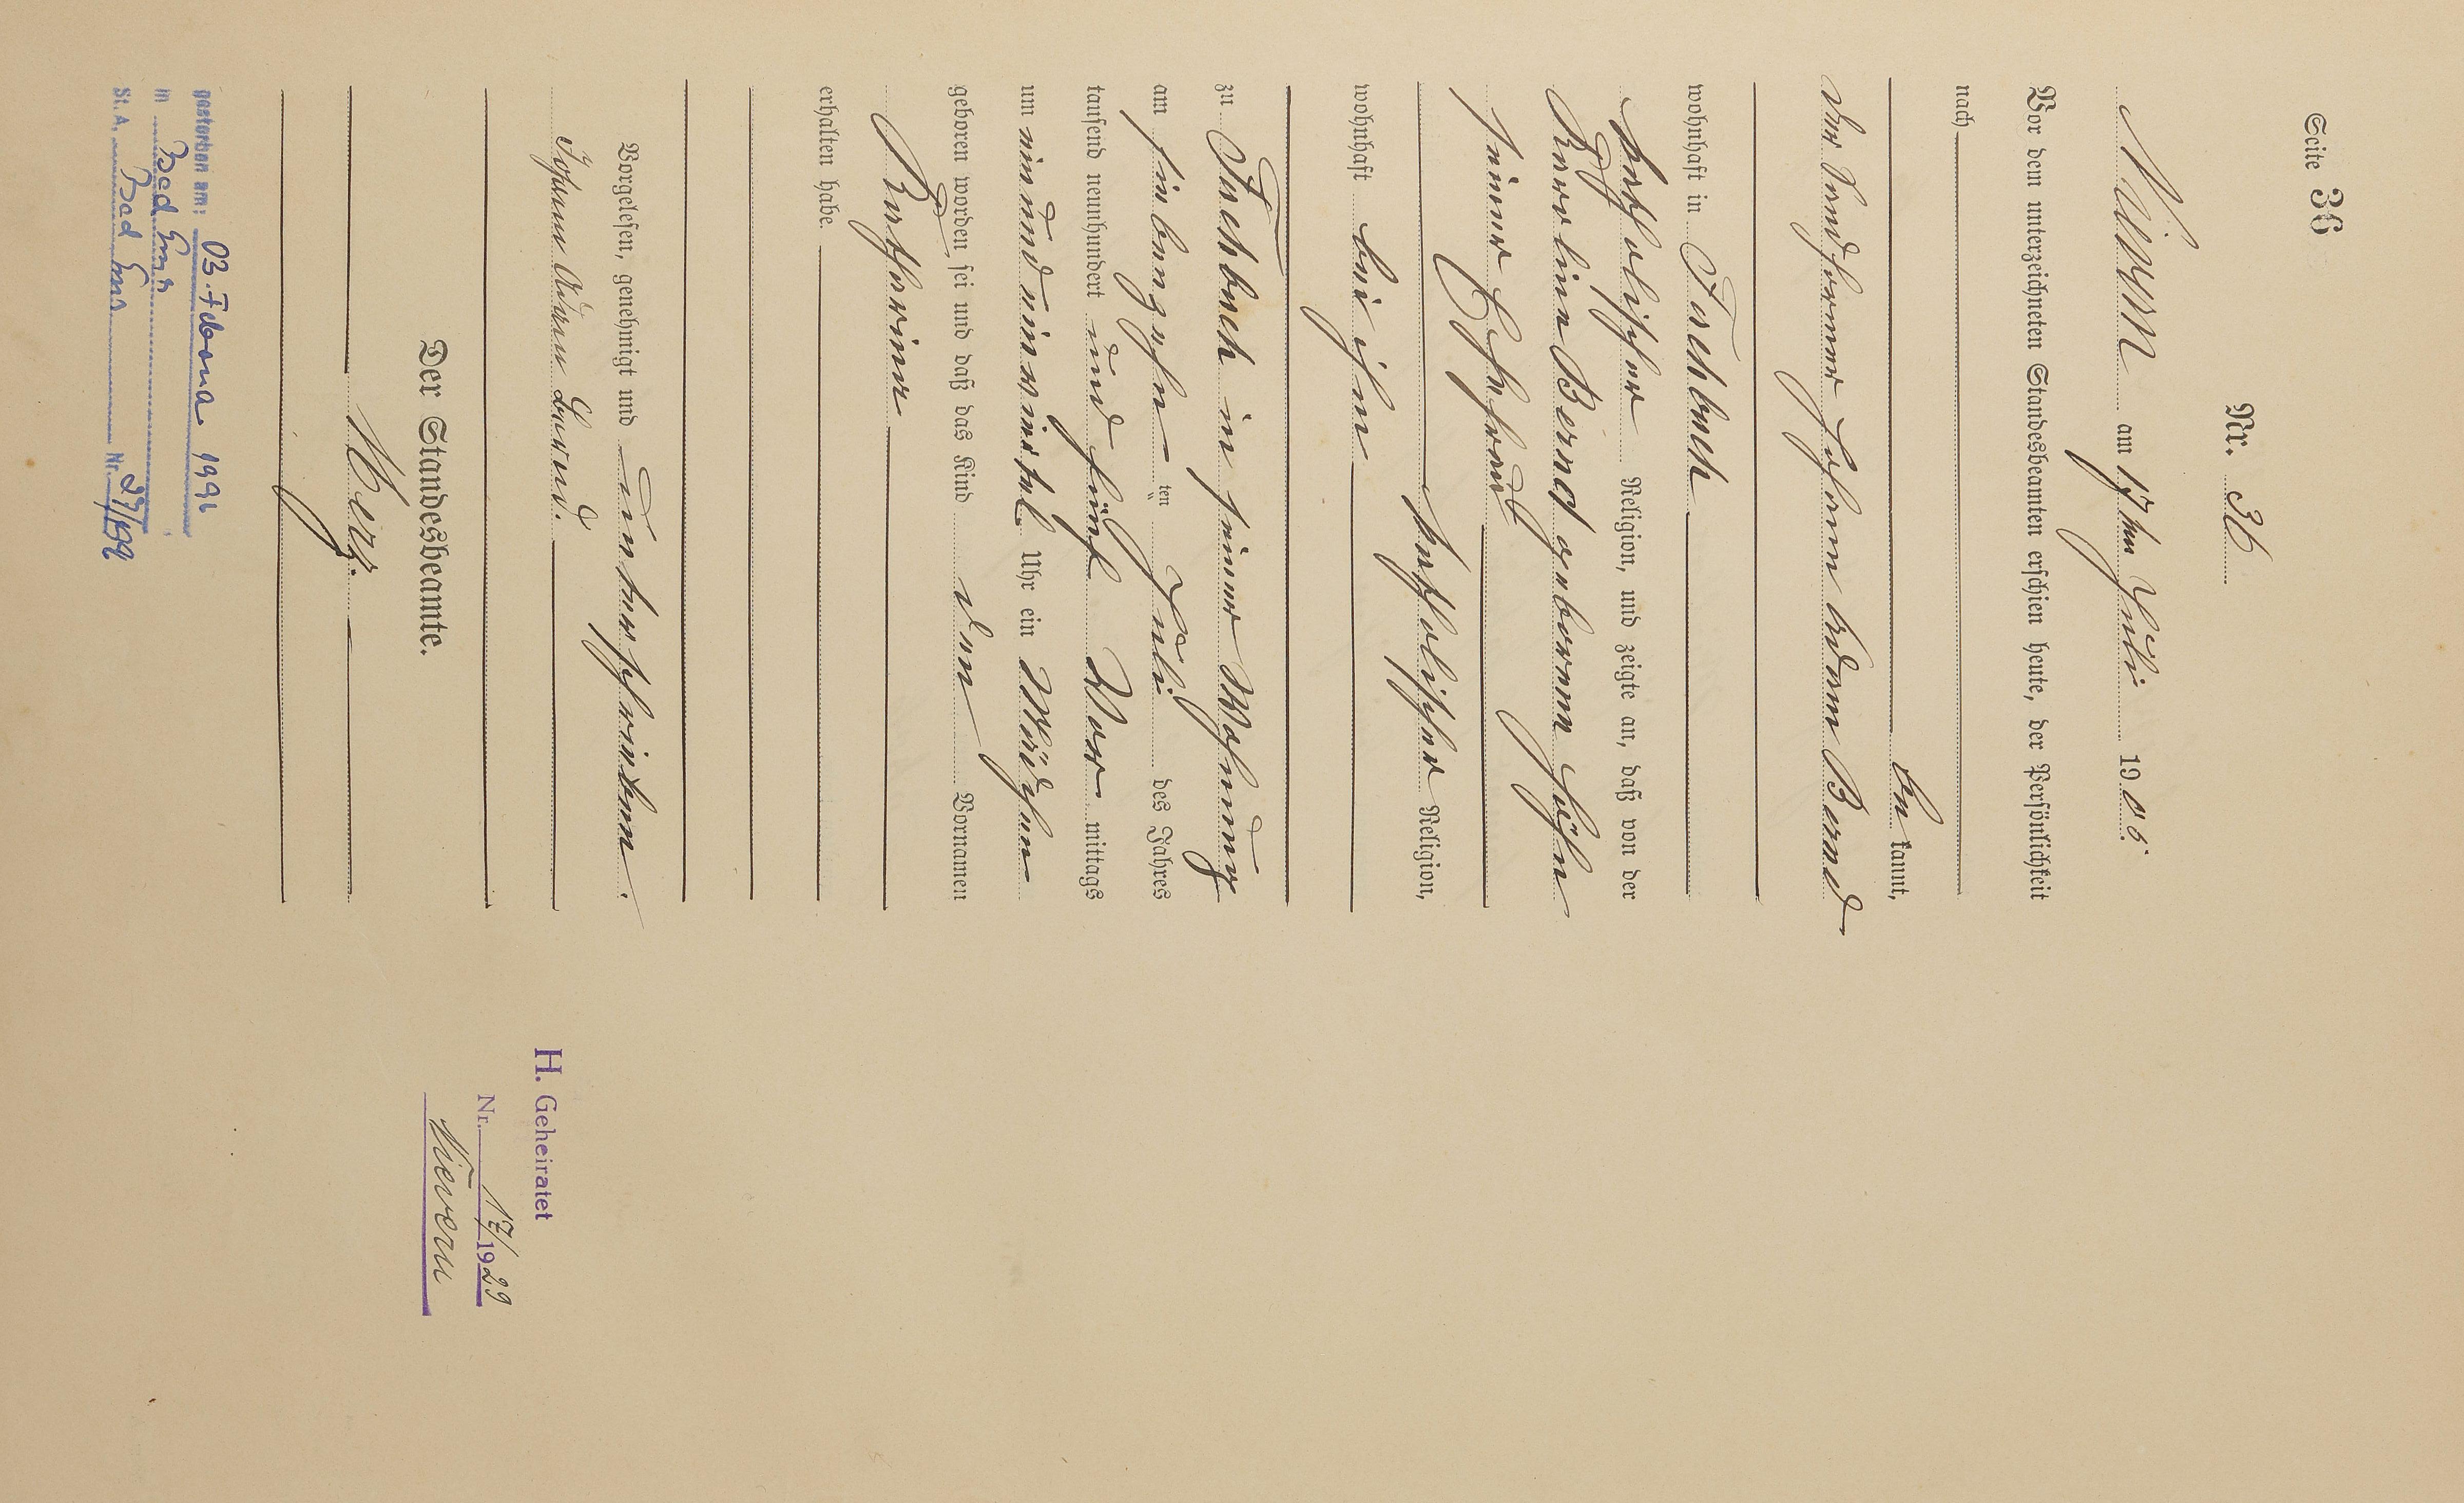 Seite 36
Nr. 36
Nievern am 17ten Juli 1905.
Vor dem unterzeichneten Standesbeamten erschien heute, der Persönlichkeit
nach
be kannt,
der Landformer Johann Adam Bernd
wohnhaft in Fachbach
katholischer Religion, und zeigte an, daß von der
Karoline Bernd geborenen Höhn
seiner Ehefrau
katholischer Religion,
wohnhaft bei ihm
zu Fachbach in seiner Wohnung
am siebenzehnten Juli des Jahres
tausend neunhundert und fünf Vor mittags
um eindreiviertel Uhr ein Mädchen
geboren worden sei und daß das Kind den Vornamen
Katharina
erhalten habe.
Vorgelesen, genehmigt und unterschrieben.
Johann Adam Bernd.
Der Standesbeamte.
H. Geheiratet
Nr. 17/1929
Nievern
gestorben am: 03. Februar 1992
in Bad Ems
St. A. Bad Ems Nr. 27/1992